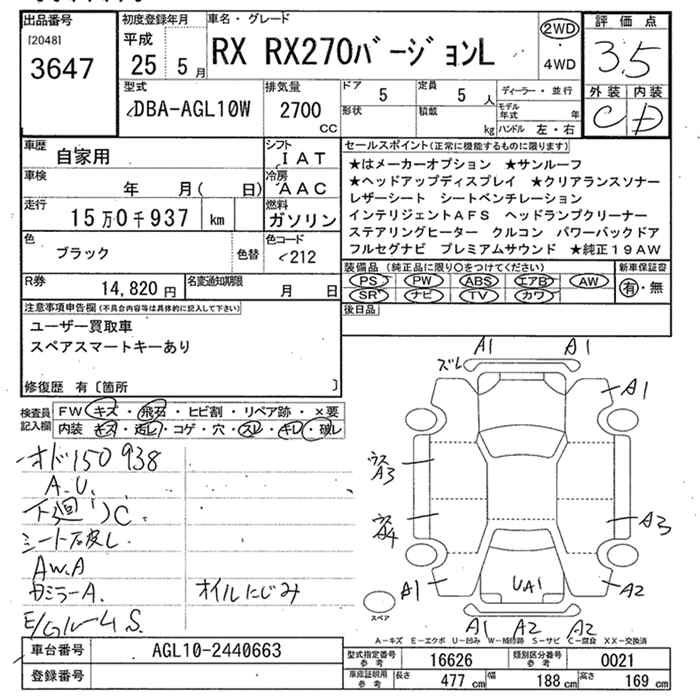 出品番号
[2048]
3647
初度登録年月
平成
25 5月
車名・グレード
RX RX270バージョンL
2WD
・
4WD
評価点
3.5
外装 内装
C D
型式
DBA-AGL10W
排気量
2700
CC
ドア 5
定員 5 人
ディーラー・並行
形状
積載 kg
モデル年式 年
ハンドル 左・右
車歴
自家用
シフト
IAT
車検
年 月( 日)
冷房
AAC
走行
15万0千937 km
燃料
ガソリン
色
ブラック
色替
色コード
<212
R券
14,820 円
名変通知期限
月 日
セールスポイント(正常に機能するものに限ります)
★はメーカーオプション ★サンルーフ
★ヘッドアップディスプレイ ★クリアランスソナー
レザーシート シートベンチレーション
インテリジェントAFS ヘッドランプクリーナー
ステアリングヒーター クルコン パワーバックドア
フルセグナビ プレミアムサウンド ★純正19AW
装備品(純正品に限り○をつけてください)
PS PW ABS エアB AW
SR ナビ TV カワ
新車保証書
有・無
後日品
注意事項申告欄(不具合内容等は具体的に記入して下さい)
ユーザー買取車
スペアスマートキーあり
修復歴 有〔箇所 〕
検査員
記入欄
FW キズ・飛石・ヒビ割・リペア跡・×要
内装 キズ・汚レ・コゲ・穴・スレ・キレ・破レ
オド150938
A.U.
下廻リC
シート石皮レ
AW.A
カミラーA.
オイルにじみ
ズレ A1 A1
A1
ウス
A3
ウス
A4
A3
A1
A2
UA1
A1 A2 A2
スペア
A-キズ E-エクボ U-凹み W-補修跡 S-サビ C-腐食 XX-交換済
車台番号
AGL10-2440663
登録番号
型式指定番号
参考
16626
類別区分番号
参考
0021
車庫証明用
参考
長さ 477 cm
幅 188 cm
高さ 169 cm